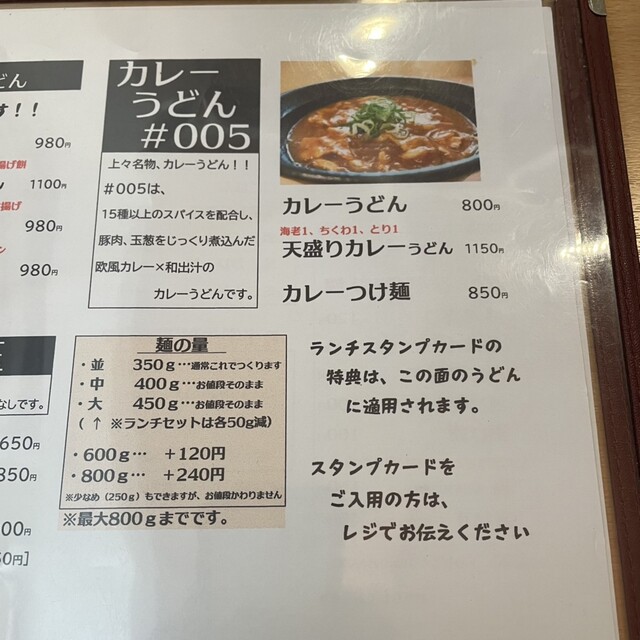 どん
す！！
980円
揚げ餅
1100円
揚げ
980円
980円
なしです。
650円
850円
00円
50円］
カレー
うどん
＃005
上々名物、カレーうどん！！
＃005は、
15種以上のスパイスを配合し、
豚肉、玉葱をじっくり煮込んだ
欧風カレー×和出汁の
カレーうどんです。
カレーうどん 800円
海老1、ちくわ1、とり1
天盛りカレーうどん 1150円
カレーつけ麺 850円
麺の量
・並 350ｇ…通常これでつくります
・中 400ｇ…お値段そのまま
・大 450ｇ…お値段そのまま
（↑ ※ランチセットは各50g減）
・600ｇ… ＋120円
・800ｇ… ＋240円
※少なめ（250ｇ）もできますが、お値段かわりません
※最大800ｇまでです。
ランチスタンプカードの
特典は、この面のうどん
に適用されます。
スタンプカードを
ご入用の方は、
レジでお伝えください